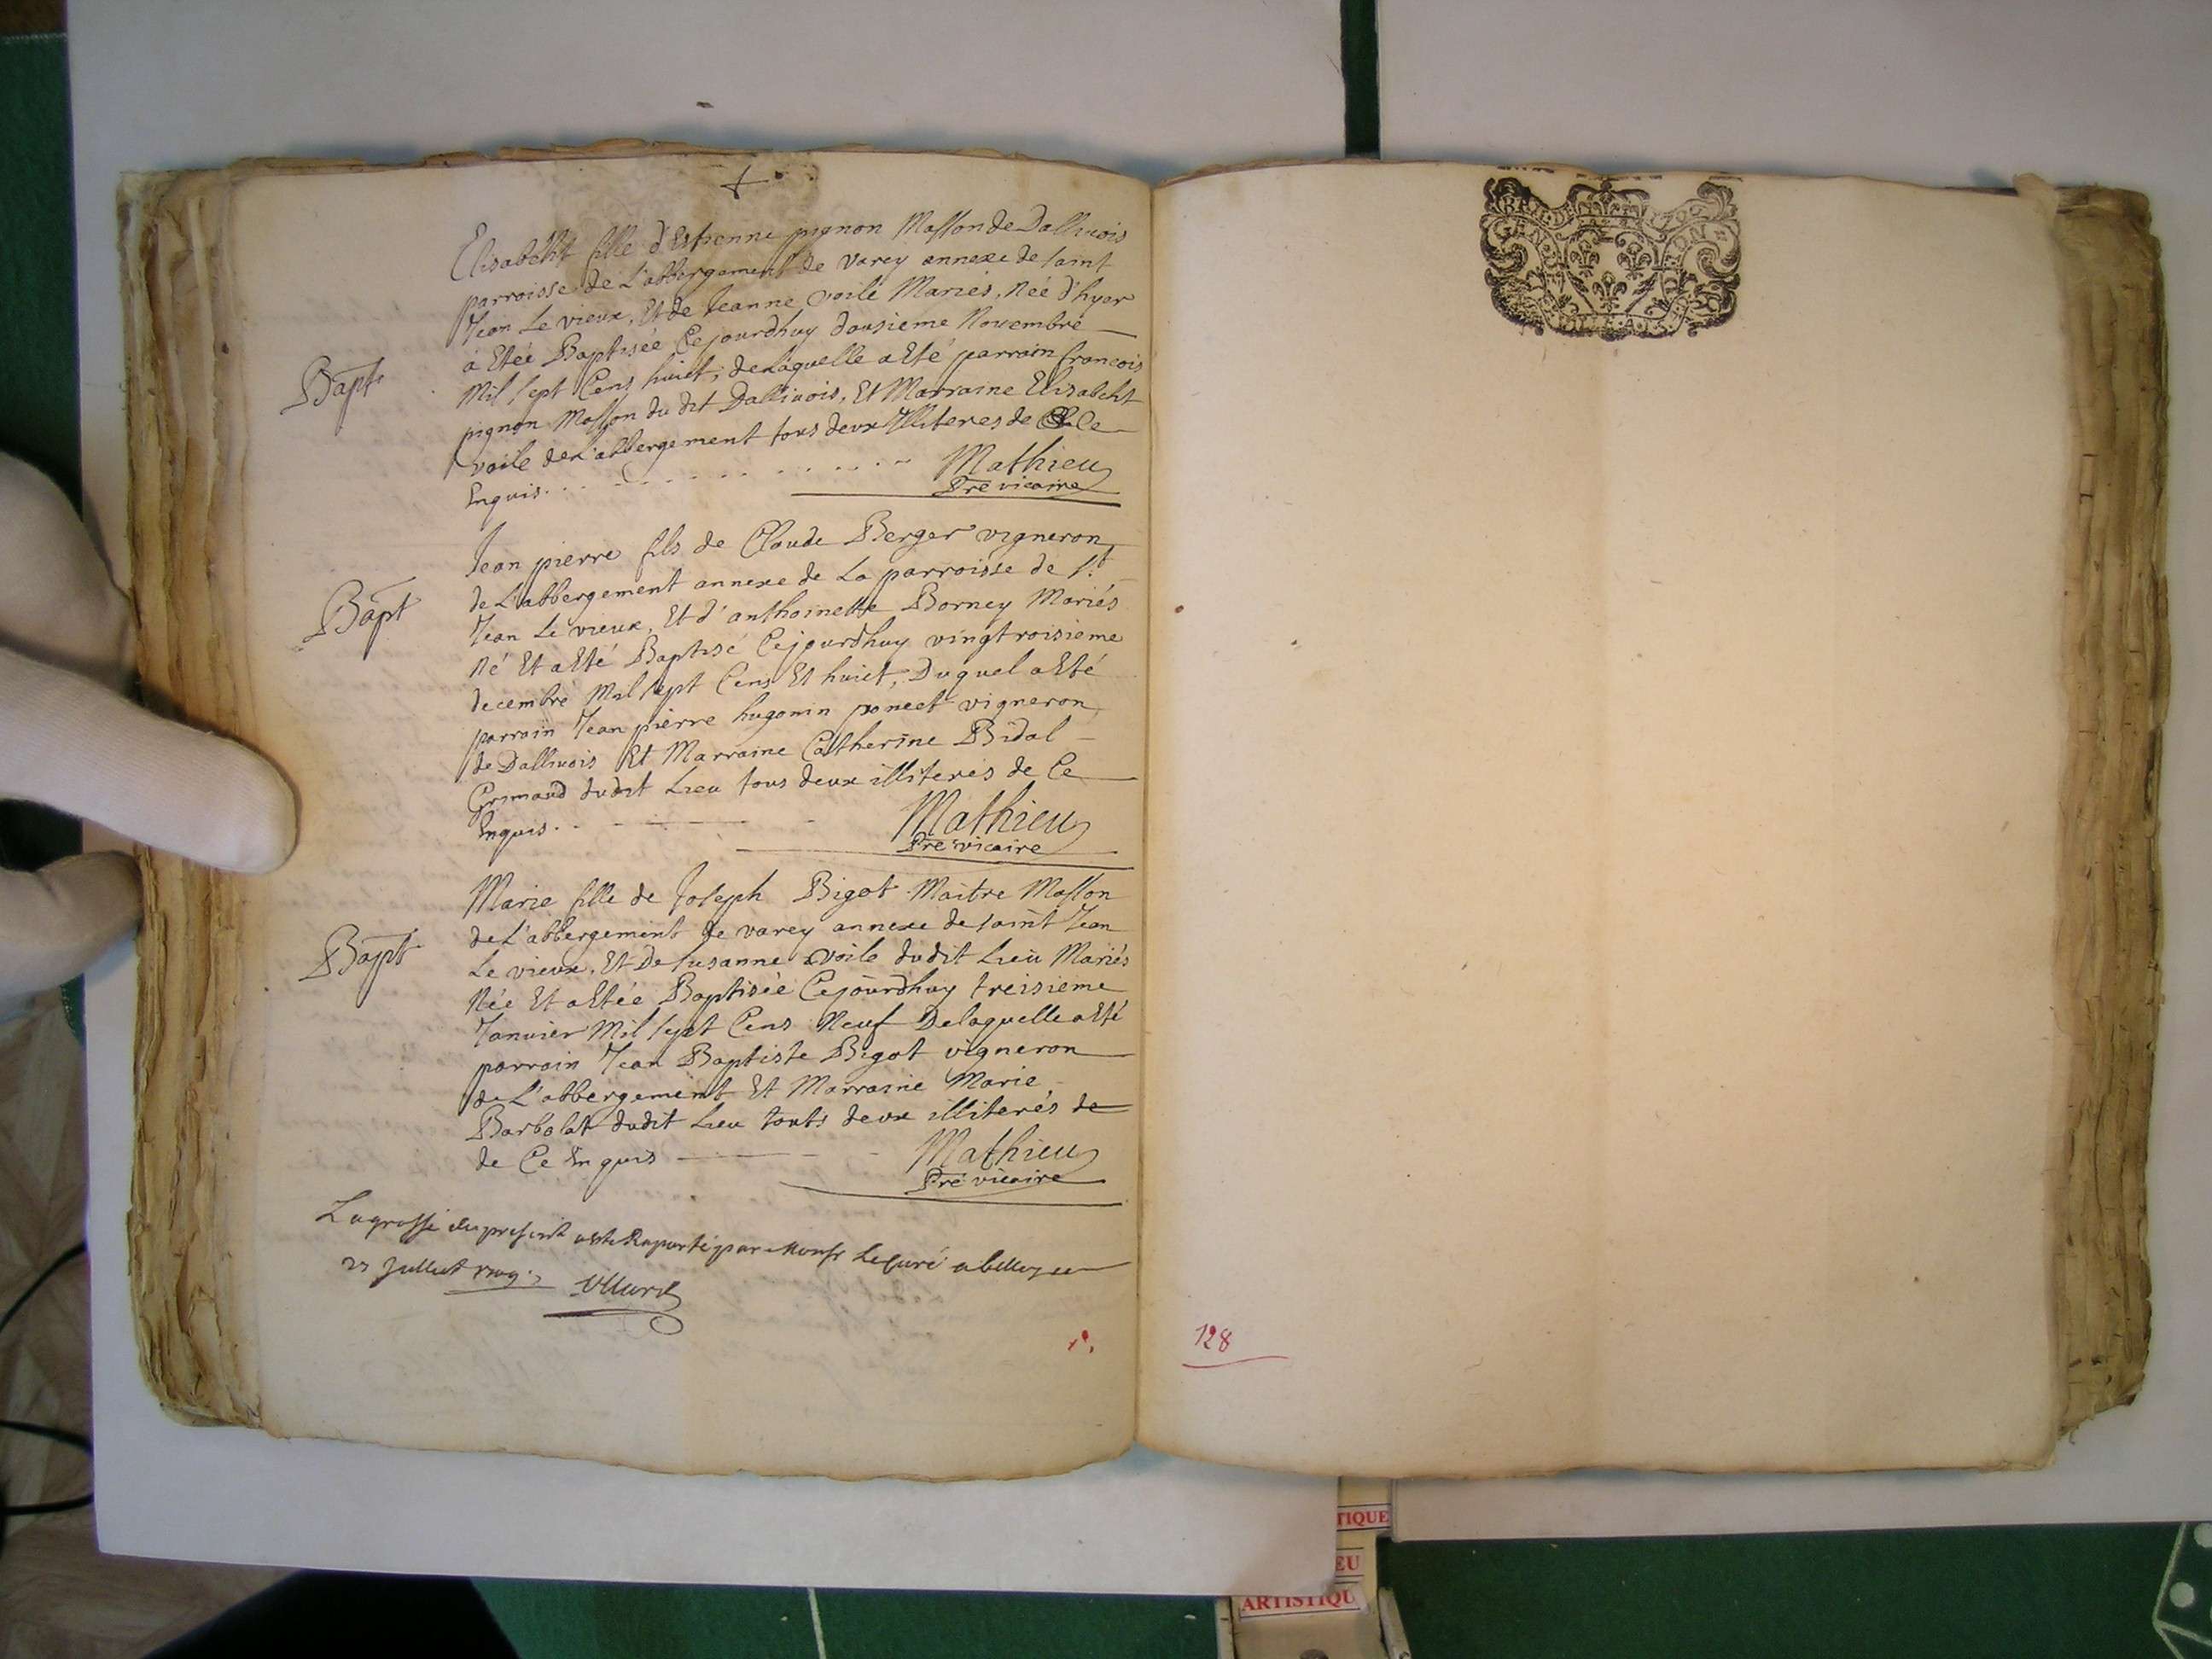 Elisabeht fille d'Estienne pignon Masson de Dallivois
parroisse de L'abbergement de varey annexe de saint
Jean Le vieux, Et de Jeanne voile Mariés, Née d'hyer
à Etée Baptisée Cejourdhuy dousieme Novembre
Bapt
Mil sept Cens huict, de Laquelle a Eté parrain francois
pignon Masson du dit Dallivois, Et Marraine Elisabeht
voile de L'abbergement tous deux Illiteres de Ce
Enquis.
Mathieu
Pre vicaire
Jean pierre fils de Claude Berger vigneron
de L'abbergement annexe de La parroisse de St
Bapt
Jean Le vieux, Et d'anthoinette Borney Mariés
Né Et a Eté Baptisé Cejourdhuy vingtroisieme
decembre Mil sept Cens Et huict, Duquel a Eté
parrain Jean pierre hugonin poncet vigneron
de Dallivois Et Marraine Catherine Bidal
Grimaud dudit Lieu tous deux illiterés de Ce
Enquis.
Mathieu
Pre vicaire
Marie fille de Joseph Bigot Maitre Masson
de L'abbergement de varey annexe de saint Jean
Bapt
Le vieux, Et De susanne voile dudit Lieu Mariés
Née Et a Etée Baptisée Cejourdhuy treisieme
Janvier Mil sept Cens Neuf Delaquelle a Eté
parrain Jean Baptiste Bigot vigneron
de L'abbergement Et Marraine Marie
Barbolat dudit Lieu touts deux illiterés de
de Ce Enquis
Mathieu
Pre vicaire
La grosse du present a este Raporté par Monsr Le Curé a belley ce
Juillet 1709.
128
GEN
TIQUE
EU
ARTISTIQU